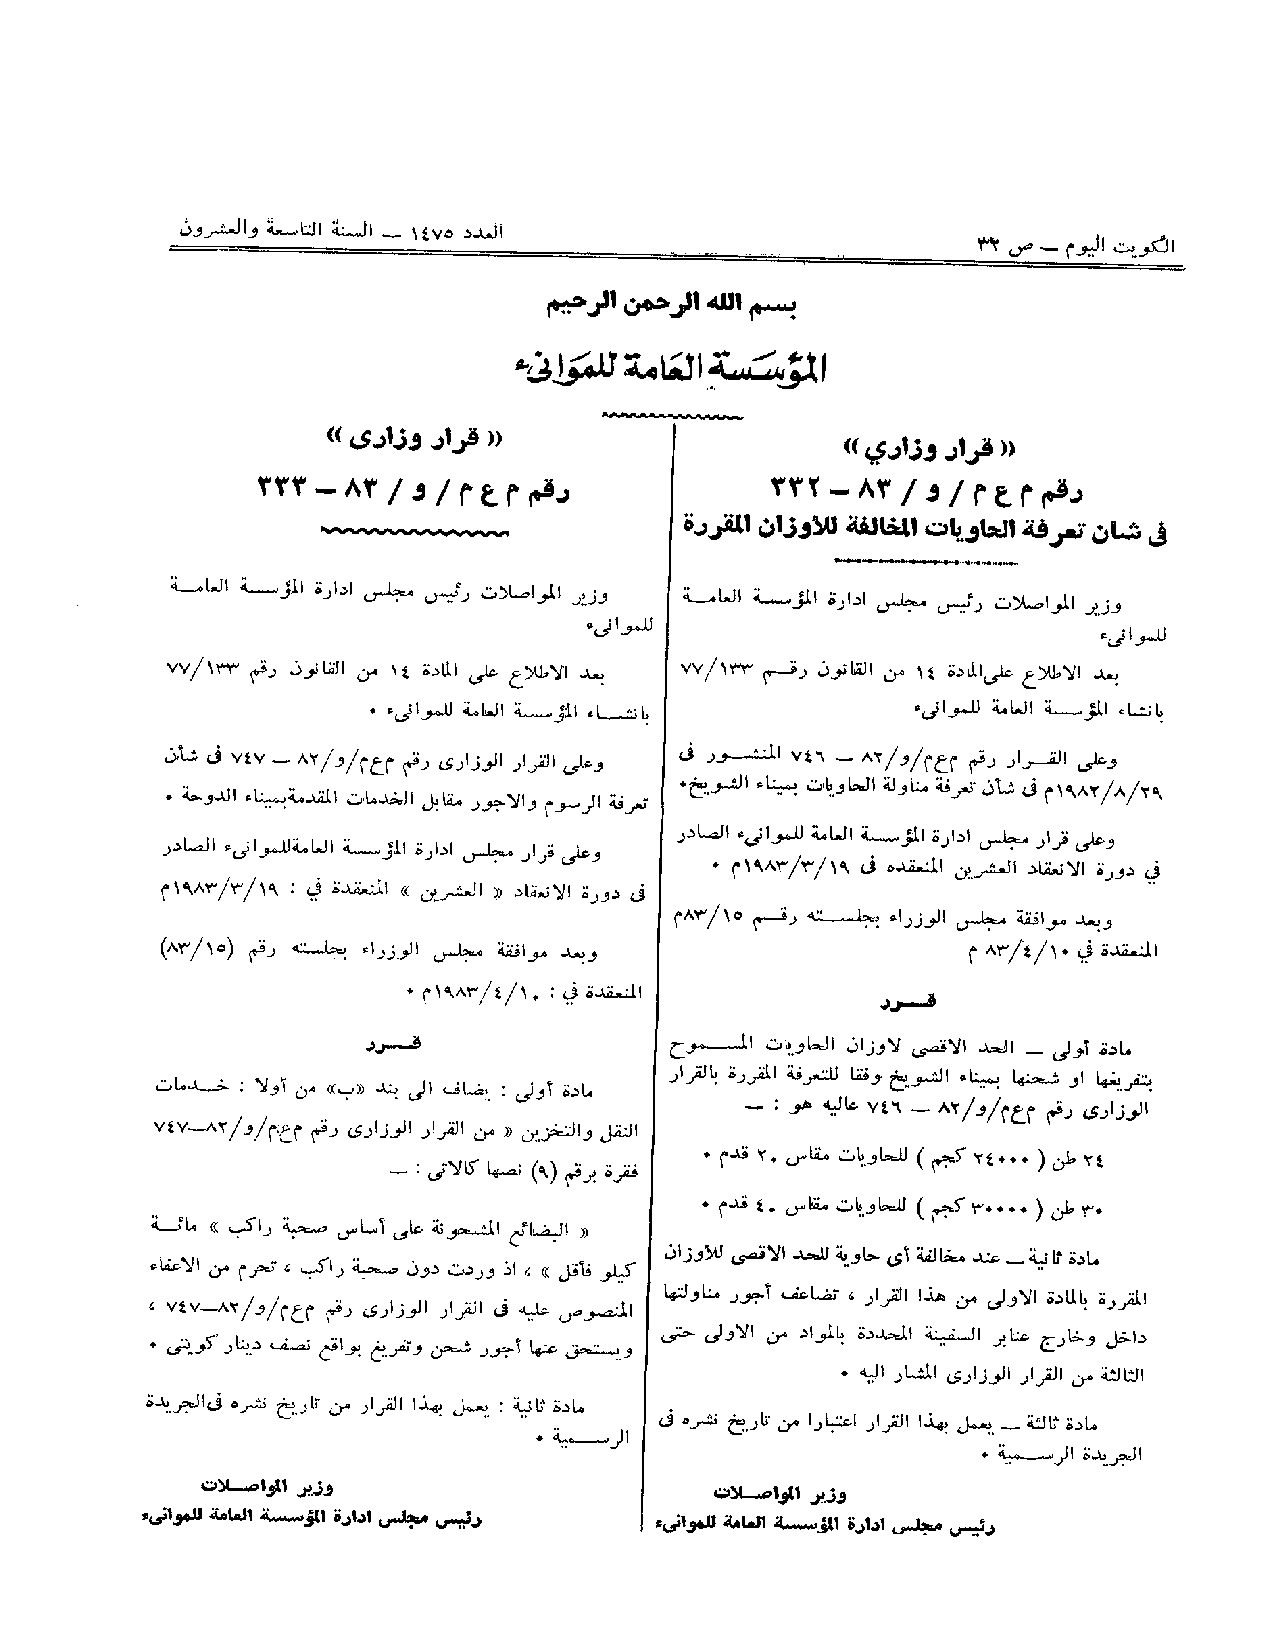 الكويت اليوم — ص ٣٢
العدد ١٤٧٥ — السنة التاسعة والعشرون
بسم الله الرحمن الرحيم
المؤسسة العامة للموانىء
« قرار وزاري »
رقم م ع م / و / ٨٣ — ٣٣٢
فى شان تعرفة الحاويات المخالفة للاوزان المقررة
وزير المواصلات رئيس مجلس ادارة المؤسسة العامة
للموانىء
بعد الاطلاع على المادة ١٤ من القانون رقم ٧٧/١٣٣
بانشاء المؤسسة العامة للموانىء
وعلى القرار رقم م ع م/و/٨٢ — ٧٤٦ المنشور فى
١٩٨٢/٨/٢٩م فى شأن تعرفة مناولة الحاويات بميناء الشويخ٠
وعلى قرار مجلس ادارة المؤسسة العامة للموانىء الصادر
في دورة الانعقاد العشرين المنعقده فى ١٩٨٣/٣/١٩م ٠
وبعد موافقة مجلس الوزراء بجلسته رقم ٨٣/١٥م
المنعقدة في ٨٣/٤/١٠ م
قرر
مادة أولى — الحد الاقصى لاوزان الحاويات المسموح
بتفريغها او شحنها بميناء الشويخ وفقا للتعرفة المقررة بالقرار
الوزارى رقم م ع م/و/٨٢ — ٧٤٦ عاليه هو : —
٢٤ طن ( ٢٤٠٠٠ كجم ) للحاويات مقاس ٢٠ قدم ٠
٣٠ طن ( ٣٠٠٠٠ كجم ) للحاويات مقاس ٤٠ قدم ٠
مادة ثانية — عند مخالفة أى حاوية للحد الاقصى للأوزان
المقررة بالمادة الاولى من هذا القرار ، تضاعف أجور مناولتها
داخل وخارج عنابر السفينة المحددة بالمواد من الاولى حتى
الثالثة من القرار الوزارى المشار اليه ٠
مادة ثالثة — يعمل بهذا القرار اعتبارا من تاريخ نشره فى
الجريدة الرسمية ٠
وزير المواصلات
رئيس مجلس ادارة المؤسسة العامة للموانىء
« قرار وزارى »
رقم م ع م / و / ٨٣ — ٣٣٣
وزير المواصلات رئيس مجلس ادارة المؤسسة العامة
للموانىء
بعد الاطلاع على المادة ١٤ من القانون رقم ٧٧/١٣٣
بانشاء المؤسسة العامة للموانىء ٠
وعلى القرار الوزارى رقم م ع م/و/٨٢ — ٧٤٧ فى شأن
تعرفة الرسوم والاجور مقابل الخدمات المقدمة بميناء الدوحة ٠
وعلى قرار مجلس ادارة المؤسسة العامة للموانىء الصادر
فى دورة الانعقاد « العشرين » المنعقدة في : ١٩٨٣/٣/١٩م
وبعد موافقة مجلس الوزراء بجلسته رقم (٨٣/١٥)
المنعقدة في : ١٩٨٣/٤/١٠م ٠
قرر
مادة أولى : يضاف الى بند «ب» من أولا : خدمات
النقل والتخزين » من القرار الوزارى رقم م ع م/و/٨٢—٧٤٧
فقرة برقم (٩) نصها كالاتى : —
« البضائع المشحونة على أساس صحبة راكب » مائة
كيلو فأقل » ، اذ وردت دون صحبة راكب ، تحرم من الاعفاء
المنصوص عليه فى القرار الوزارى رقم م ع م/و/٨٢—٧٤٧ ،
ويستحق عنها أجور شحن وتفريغ بواقع نصف دينار كويتى ٠
مادة ثانية : يعمل بهذا القرار من تاريخ نشره فى الجريدة
الرسمية ٠
وزير المواصلات
رئيس مجلس ادارة المؤسسة العامة للموانىء